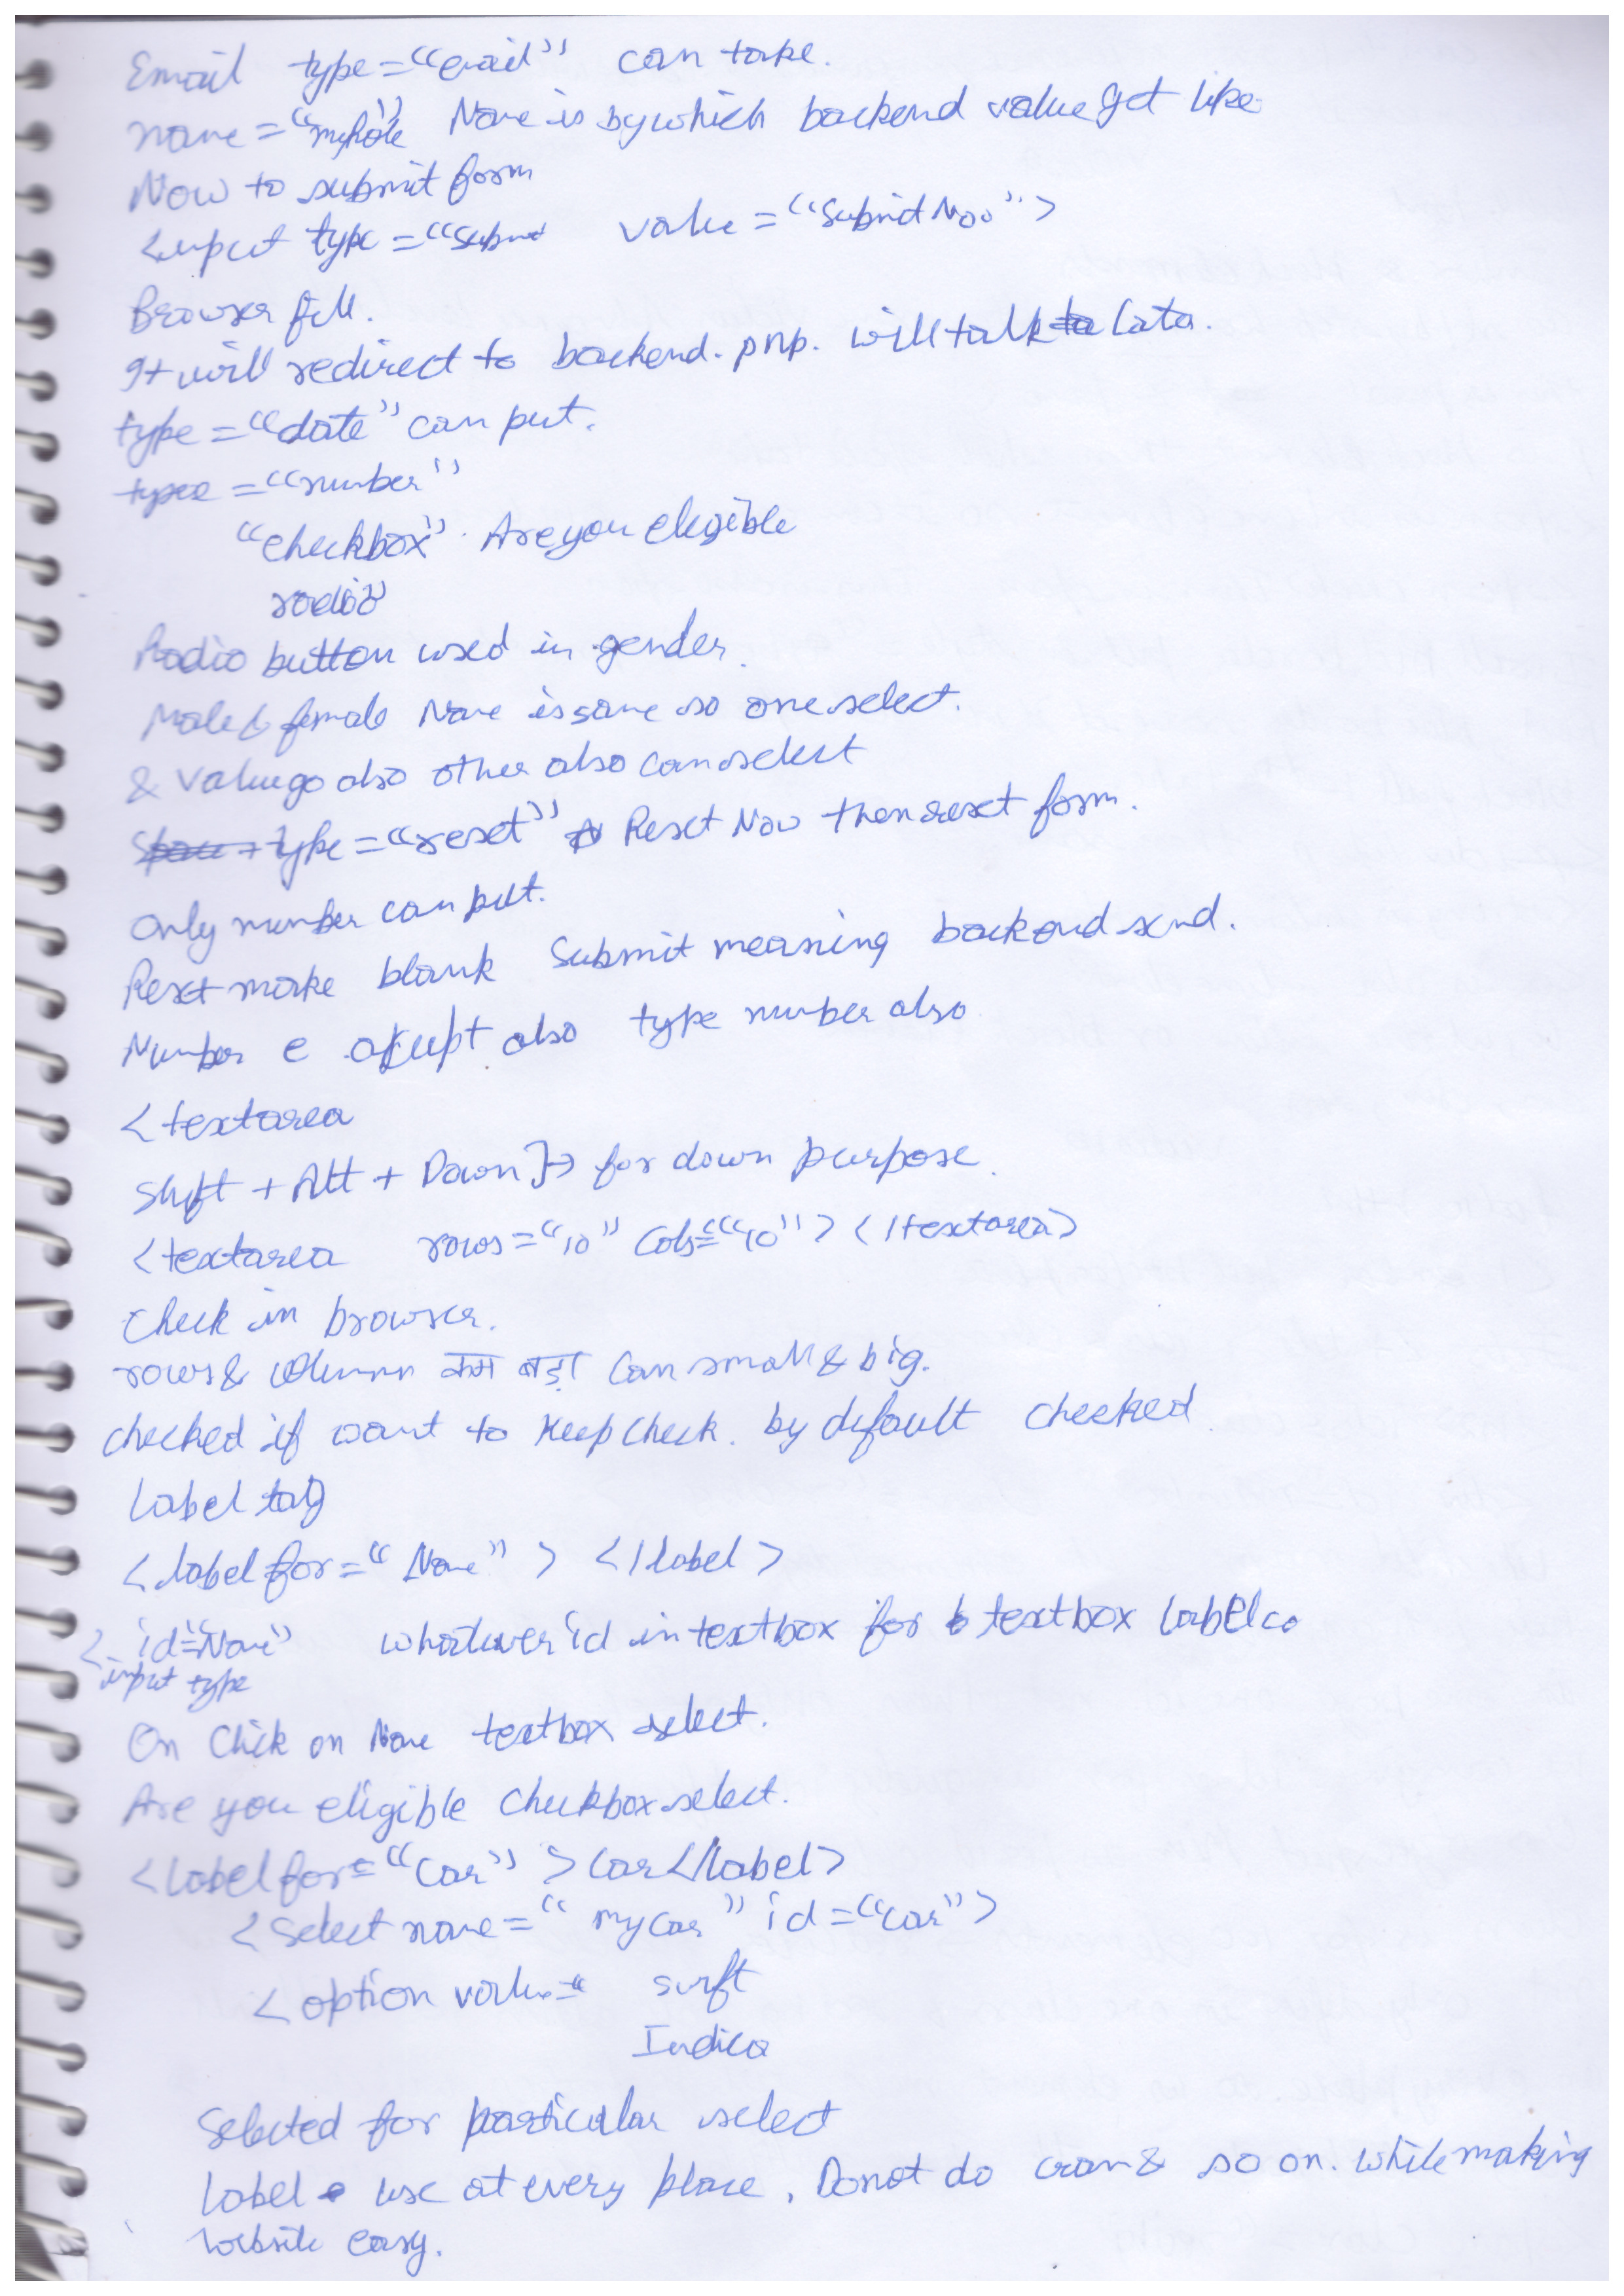 Email type="email" can take.
name="myName" Name is by which backend value get like
Now to submit form
<input type="submit value="Submit Now">
Browser fill.
It will redirect to backend. php. will talk to later.
type="date" can put.
type="number"
"checkbox". Are you eligible
radio"
Radio button used in gender.
Male & female Name is same so one select.
& value go also other also can select
type="reset" Reset Now then reset form.
Only number can put.
Reset make blank Submit meaning backend send.
Number e accept also type number also
<textarea
Shift + Alt + Down}→ for down purpose.
<textarea rows="10" Cols="10"></textarea>
Check in browser.
rows & column कम बड़ा Can small & big.
checked if want to keep check. by default checked
Label tag
<label for="Name"></label>
< id="Name" whatever id in textbox for textbox label co
input type
On Click on Name textbox select.
Are you eligible Checkbox select.
<label for="Car">Car</label>
<select name="myCar" id="Car">
<option value=" swift
Indica
Selected for particular select
Label use at every place. Do not do cram & so on. While making
website easy.